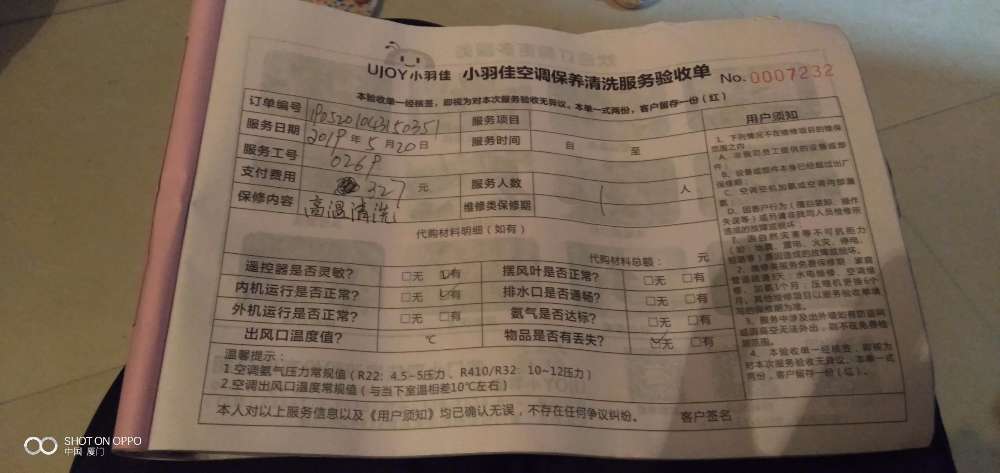 UJOY小羽佳 小羽佳空调保养清洗服务验收单 No. 0007232
本验收单一经核签，即视为对本次服务验收无异议。本单一式两份，客户留存一份（红）
订单编号 服务项目
服务日期 2019年5月20日 服务时间 自 至
服务工号
支付费用 327元 服务人数 1人
保修内容 高温清洗 维修类保修期
代购材料明细（如有）
代购材料总额： 元
遥控器是否灵敏？ □无 □有 摆风叶是否正常？ □无 □有
内机运行是否正常？ □无 □有 排水口是否通畅？ □无 □有
外机运行是否正常？ □无 □有 氨气是否达标？ □无 □有
出风口温度值？ ℃ 物品是否有丢失？ □无 □有
温馨提示：
1.空调氨气压力常规值（R22：4.5~5压力、R410/R32：10~12压力）
2.空调出风口温度常规值（与当下室温相差10℃左右）
本人对以上服务信息以及《用户须知》均已确认无误，不存在任何争议纠纷。 客户签名
用户须知
1、下列情况不在维修项目的维保
范围之内
A、非我司员工提供的设备或部
件；
B、设备或部件本身已经超过出厂
保修期；
C、空调空机加氨或空调内部漏
氨；
D、因客户行为（擅自装卸、操作
失误等）或另请非我司人员维修所
造成的故障或损坏；
自然灾害等不可抗力
地震、雷电、火灾、停电、
原因造成的故障或损坏。
3、服务中涉及出外墙如有防盗网
或因高空无法外出，则不在免费检
测范围。
4、本验收单一经核签，即视为
对本次服务验收无异议。本单一式
两份，客户留存一份（红）。
SHOT ON OPPO
中国 厦门